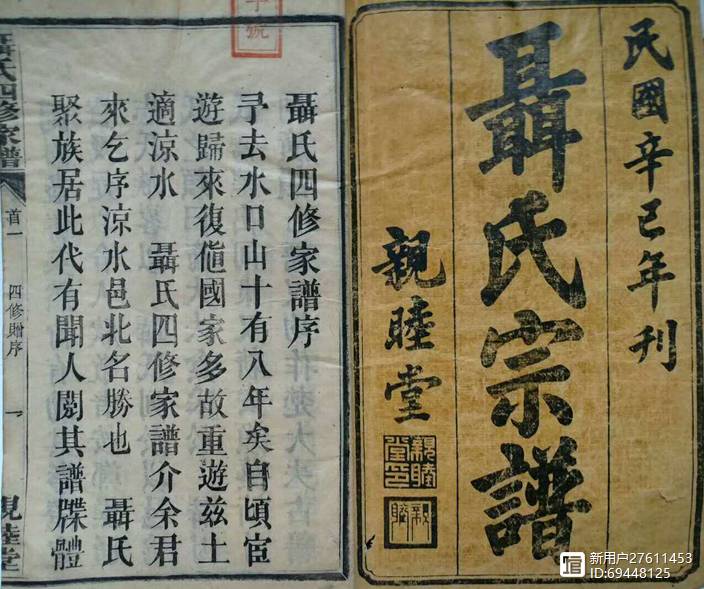 民國辛巳年刊
聶氏宗譜
親睦堂
親睦堂印
聶氏四修家譜序
予去水口山十有八年矣自頃宦
遊歸來復值國家多故重遊兹土
適涼水 聶氏四修家譜介余君
來乞序涼水邑北名勝也 聶氏
聚族居此代有聞人閱其譜牒體
聶氏四修家譜
首一 四修贈序 一
親睦堂
新用户27611453
ID:69448125